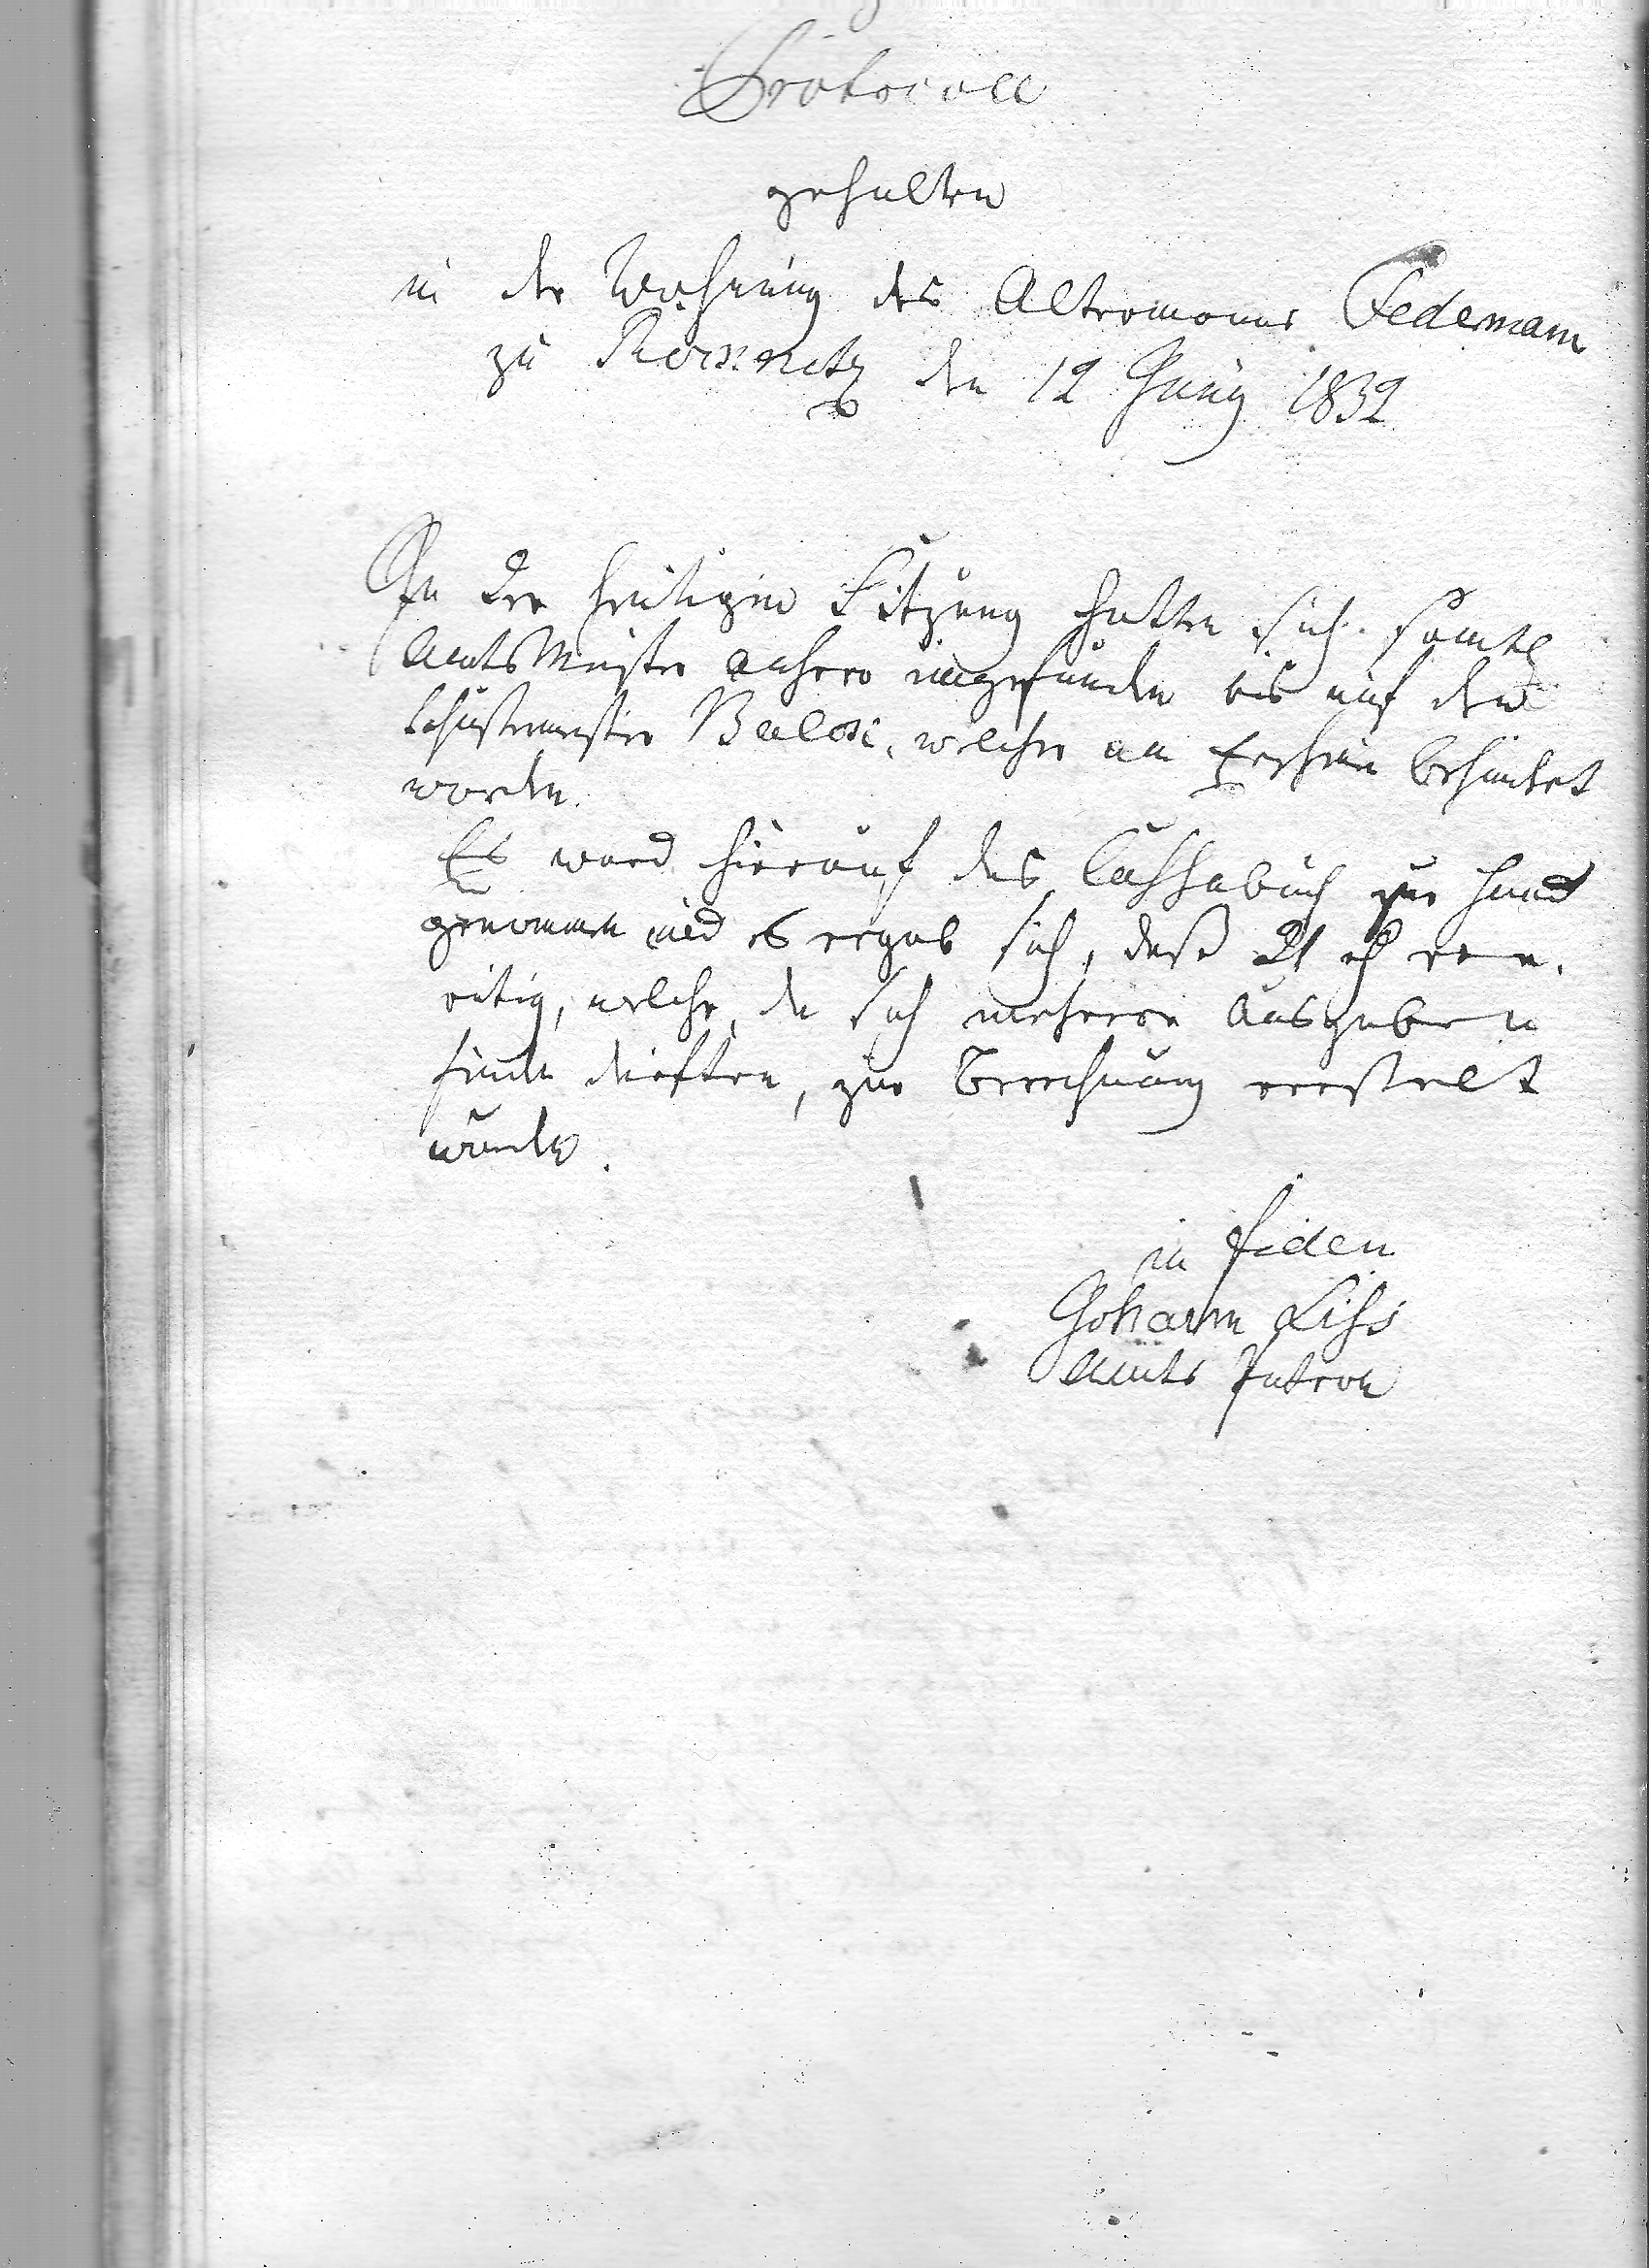 Protocoll
gehalten
in der Wohnung des Altermanns Federmann
zu den 12 Juny 1832
In der heutigen Sitzung hatten sich sämtl
Amts Meister anhero eingefunden bis auf den
Schustermeister welcher am Erscheinen behindert
worden.
Es ward hierauf das Cassabuch zur Hand
genommen und es ergab sich, daß 21
welche, da sich mehrere Ausgaben
finden dürften, zur Berechnung verstelt
wurde.
in fidem
Johann Liss
Amts Patron